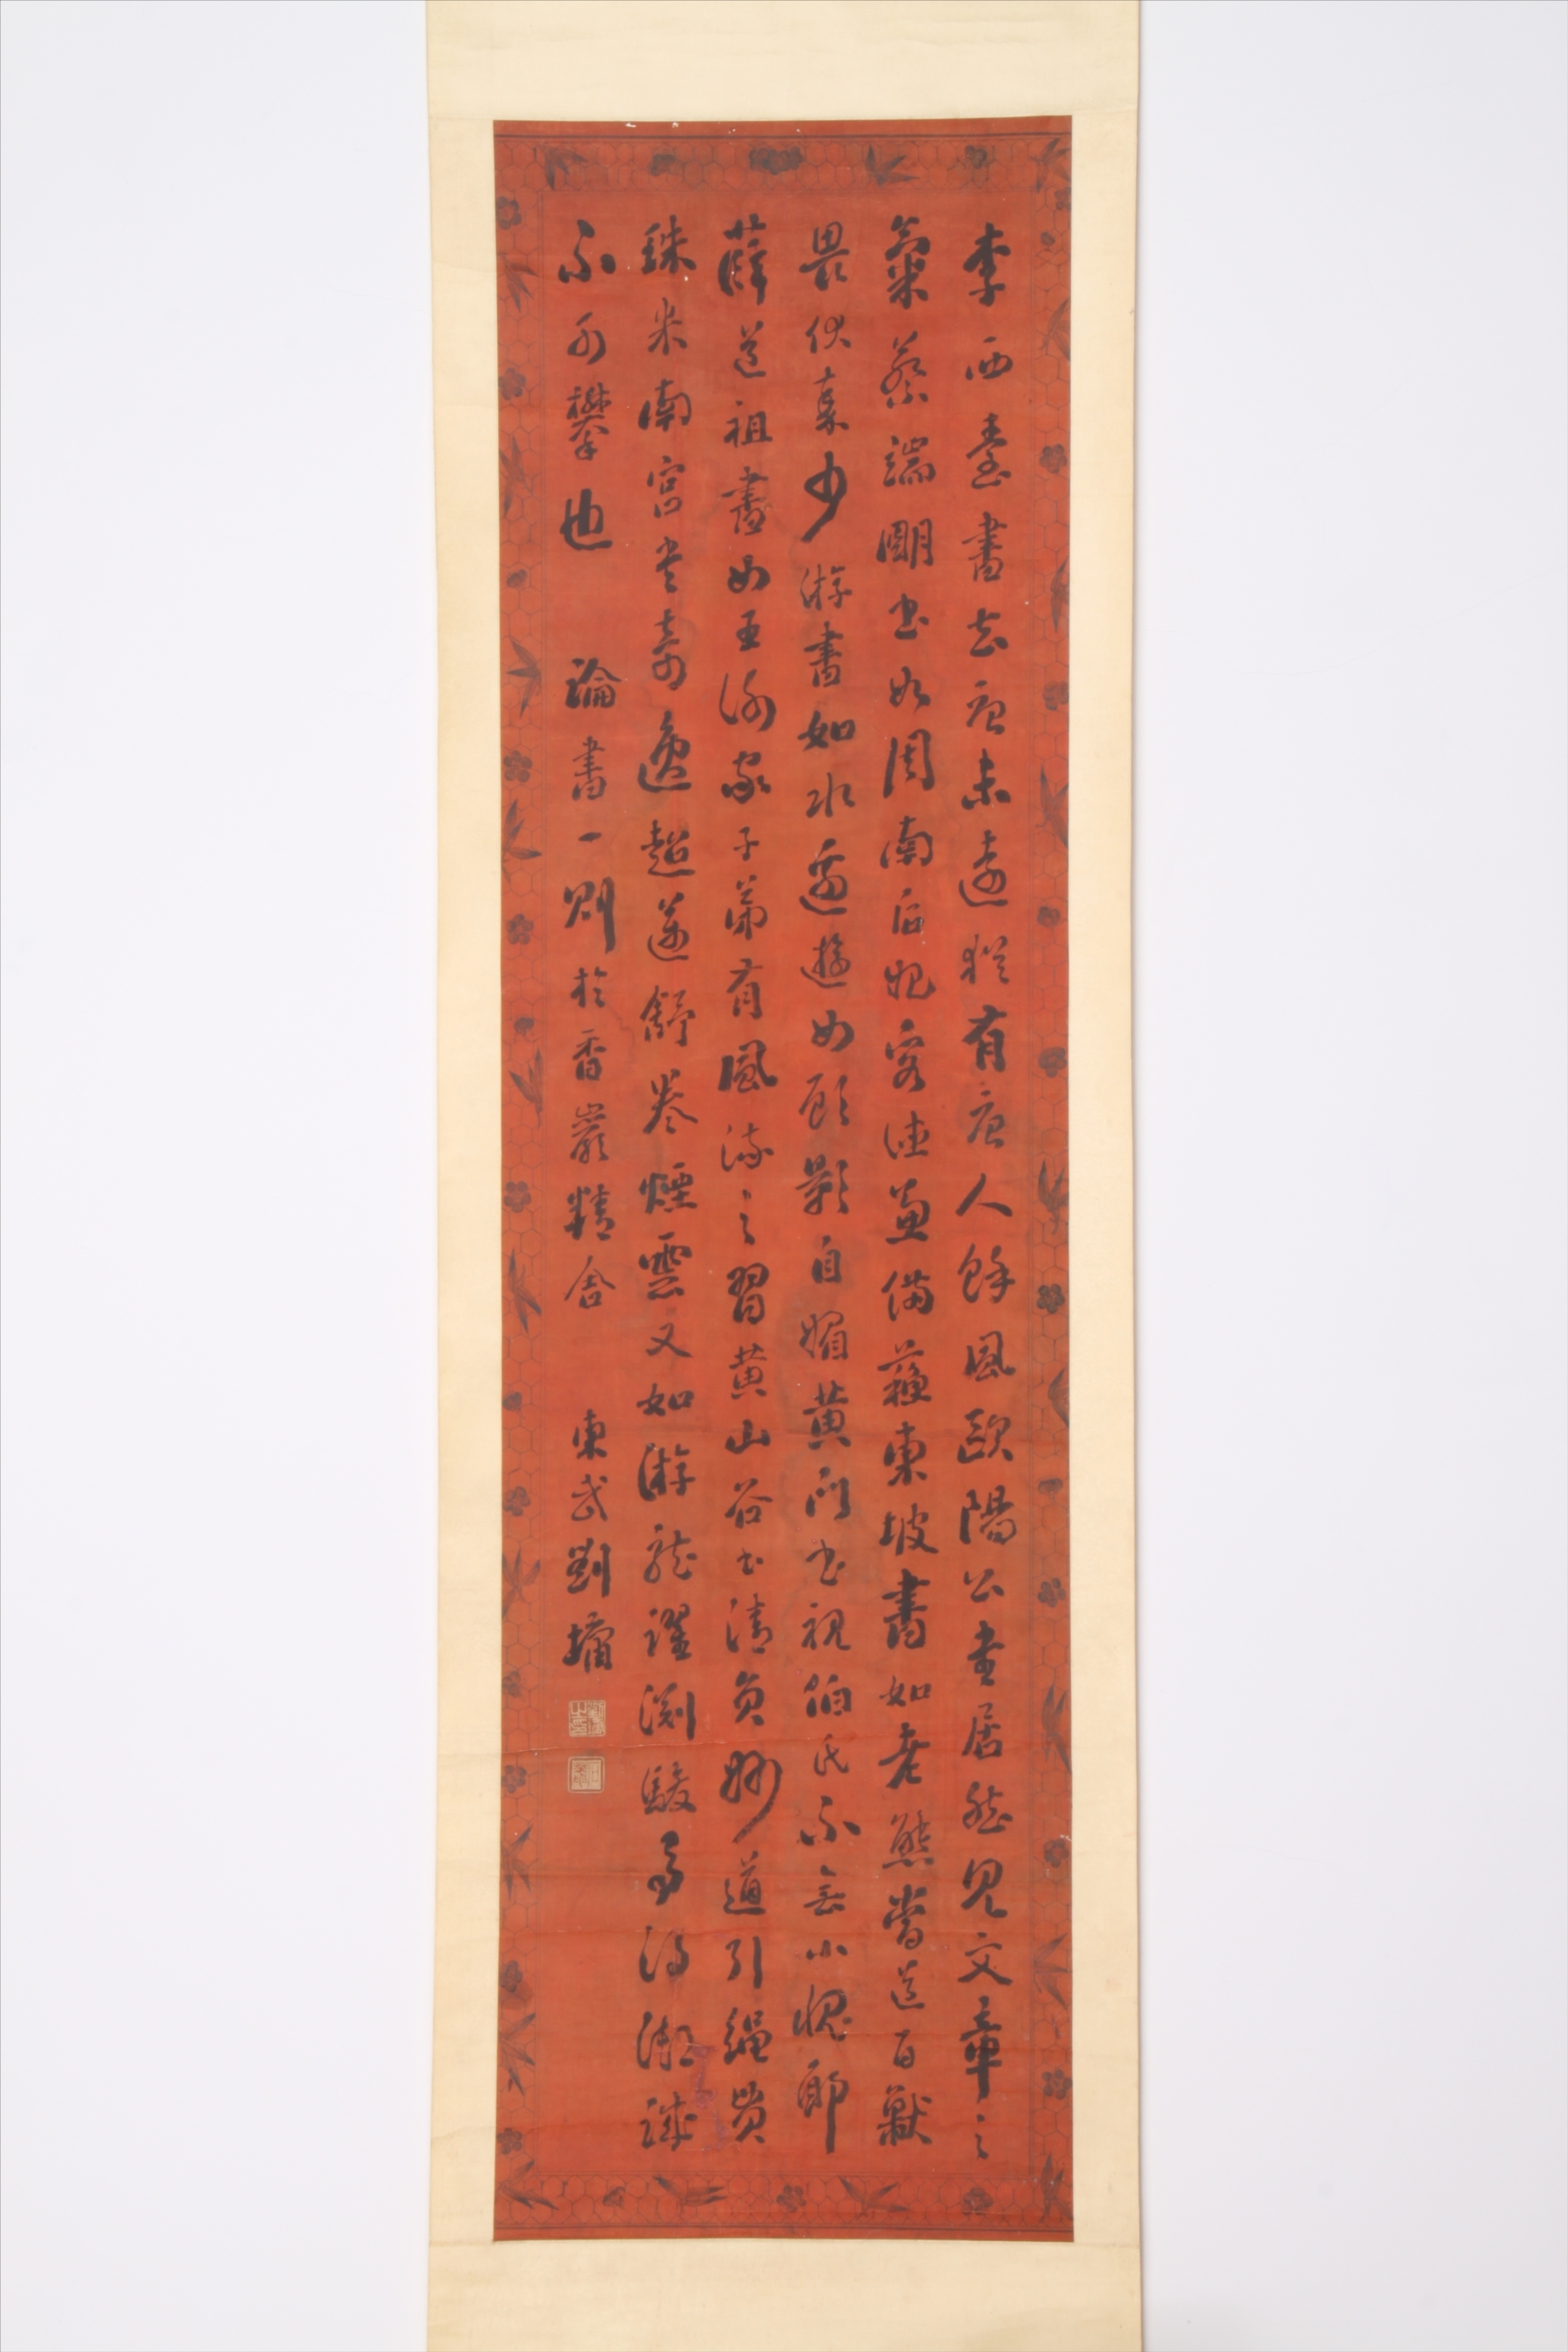 李西臺書去唐未遠猶有唐人餘風歐陽公書居然見文章之
氣蔡端明書如周南后妃容德兼備蘇東坡書如老熊當道百獸
畏伏秦少游書如水邊遊女顧影自媚黃門書視伯氏不無小愧耶
薛道祖書如王謝家子弟有風流之習黃山谷書清真妙道引繩貫
珠米南宮書奇逸超邁舒卷煙雲又如游龍躍淵駿馬得御誠
不可攀也 論書一則於香巖精舍 東武劉墉